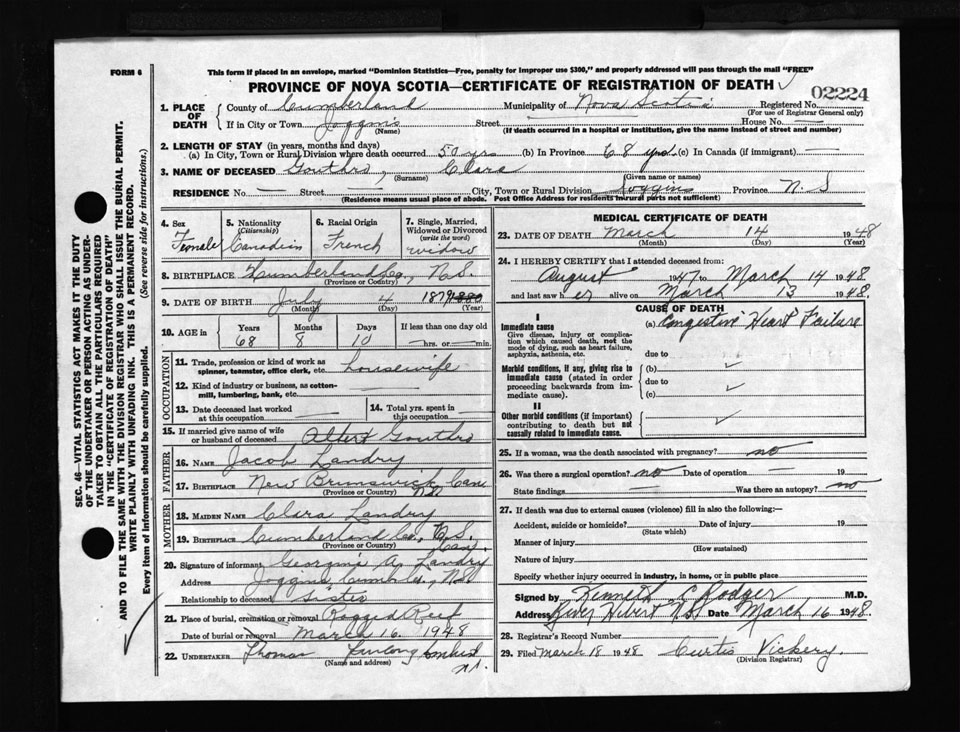 FORM 6
This form if placed in an envelope, marked "Dominion Statistics—Free, penalty for improper use $300," and properly addressed will pass through the mail "FREE"
PROVINCE OF NOVA SCOTIA—CERTIFICATE OF REGISTRATION OF DEATH
02224
1. PLACE OF DEATH
County of Cumberland Municipality of Nova Scotia Registered No.
(For use of Registrar General only)
If in City or Town Joggins Street House No. —
(Name) (If death occurred in a hospital or institution, give the name instead of street and number)
2. LENGTH OF STAY (in years, months and days)
(a) In City, Town or Rural Division where death occurred 50 yrs (b) In Province 68 yrs. (c) In Canada (if immigrant) —
3. NAME OF DECEASED Gouthro, Clara
(Surname) (Given name or names)
RESIDENCE No. — Street — City, Town or Rural Division Joggins Province N.S
(Residence means usual place of abode. Post Office Address for residents in rural parts not sufficient)
4. Sex Female
5. Nationality (Citizenship) Canadien
6. Racial Origin French
7. Single, Married, Widowed or Divorced (write the word) widow
8. BIRTHPLACE Cumberland Co., N.S.
(Province or Country)
9. DATE OF BIRTH July 4 1879 1880
(Month) (Day) (Year)
10. AGE in Years 68 Months 8 Days 10 If less than one day old —hrs. or —min.
OCCUPATION
11. Trade, profession or kind of work as spinner, teamster, office clerk, etc. housewife
12. Kind of industry or business, as cotton-mill, lumbering, bank, etc.
13. Date deceased last worked at this occupation
14. Total yrs. spent in this occupation
15. If married give name of wife or husband of deceased Albert Gouthro
FATHER
16. NAME Jacob Landry
17. BIRTHPLACE New Brunswick Can
(Province or Country)
MOTHER
18. MAIDEN NAME Clara Landry
19. BIRTHPLACE Cumberland Co., N.S. Can.
(Province or Country)
20. Signature of informant Georgina A. Landry
Address Joggins, Cumb. Co., N.S.
Relationship to deceased Sister
21. Place of burial, cremation or removal Ragged Reef
Date of burial or removal March 16. 1948
22. UNDERTAKER Thomas Furlong Amherst N.S.
(Name and address)
MEDICAL CERTIFICATE OF DEATH
23. DATE OF DEATH March 14 1948
(Month) (Day) (Year)
24. I HEREBY CERTIFY that I attended deceased from:
August 1947 to March 14 1948.
and last saw her alive on March 13 1948.
CAUSE OF DEATH
I
Immediate cause
Give disease, injury or complication which caused death, not the mode of dying, such as heart failure, asphyxia, asthenia, etc.
(a) Congestive Heart Failure
due to
Morbid conditions, if any, giving rise to immediate cause (stated in order proceeding backwards from immediate cause).
(b)
due to
(c)
II
Other morbid conditions (if important) contributing to death but not causally related to immediate cause.
25. If a woman, was the death associated with pregnancy? no
26. Was there a surgical operation? no Date of operation — 19
State findings — Was there an autopsy? no
27. If death was due to external causes (violence) fill in also the following:—
Accident, suicide or homicide? Date of injury 19
(State which)
Manner of injury
(How sustained)
Nature of injury
Specify whether injury occurred in industry, in home, or in public place
Signed by Kenneth C Rodger M.D.
Address River Hebert N.S. Date March 16 1948.
28. Registrar's Record Number
29. Filed March 18 1948 Curtis Vickery.
(Division Registrar)
SEC. 46—VITAL STATISTICS ACT MAKES IT THE DUTY
OF THE UNDERTAKER OR PERSON ACTING AS UNDER-
TAKER TO OBTAIN ALL THE PARTICULARS REQUIRED
IN THE "CERTIFICATE OF REGISTRATION OF DEATH"
AND TO FILE THE SAME WITH THE DIVISION REGISTRAR WHO SHALL ISSUE THE BURIAL PERMIT.
WRITE PLAINLY WITH UNFADING INK. THIS IS A PERMANENT RECORD.
Every item of information should be carefully supplied. (See reverse side for instructions.)